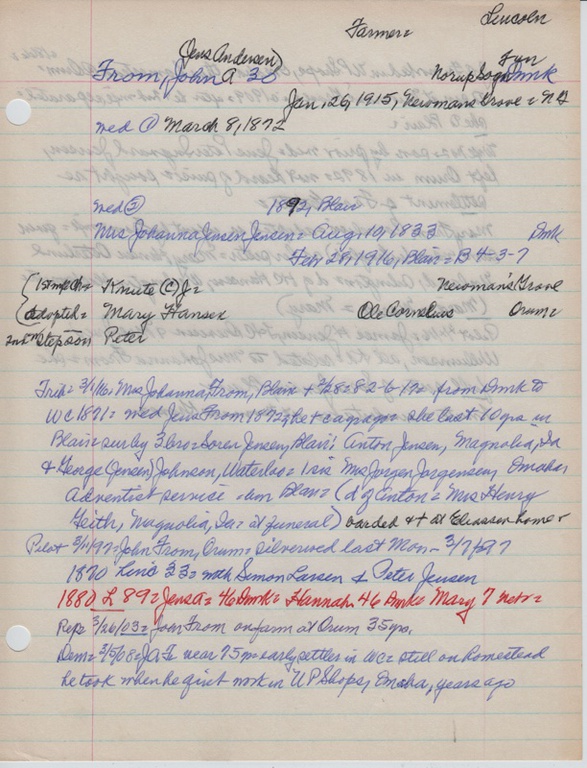 Farmer= Lincoln
(Jens Andersen) Fyn
From, John A 30 Norup Sogn Dmk
Jan. 26, 1915, Newmans Grove =
wed @ March 8, 1872
wed 1892, Blair
Mrs Johanna Jensen Jensen = Aug, 10, 1833 Dmk
Feb, 28, 1916, Blair = B 4-3-7
Knute (C) Jr = Newman's Grove
adopted = Mary Hansen Ole Cornelius Orum =
2nd stepson Peter
Trib = 3/1/16, Mrs Johanna From, Blair + 2/28 = 82-6-17 = from Dmk to
WC 1871 = wed Jens From 1872; he + = she last 10 yrs in
Blair = surby 3 bro = Soren Jensen, Blair; Anton Jensen, Magnolia, Ia
& George (Jensen) Johnson, Waterloo = 1 sis Mrs Jorgen Jorgensen, Omaha
Adventist service - Blair = (d of Anton = Mrs Henry
Magnolia, Ia = at funeral) boarded + + at Eliassen home
Pilot = John From, Orum = silverwed last Mon - 3/7/97
1870 Linc 33 = with Simon Larsen & Peter Jensen
1880 L 89 = Jens A = 46 Dmk = Hannah 46 Dmk = Mary 7 nebr =
Rep = 3/26/03 = John From on farm at Orum 35 yrs.
Dem = 3/5/08 = JA Fr near 75 = early settler in WC = still on homestead
he took when he quit work in UP Shops, Omaha, years ago